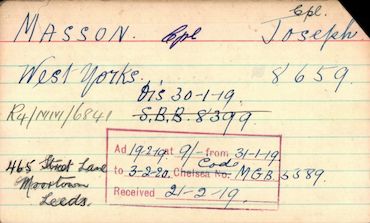 Cpl.
MASSON. Cpl Joseph
West Yorks. 8659.
Dis 30-1-19.
S.B.B. 8399
R4/MM/6841
Ad 19-2-19 at 9/- from 31-1-19
Code
to 3-2-20. Chelsea No. MGB 5389
Received 21-2-19.
465 Street Lane
Moortown
Leeds.